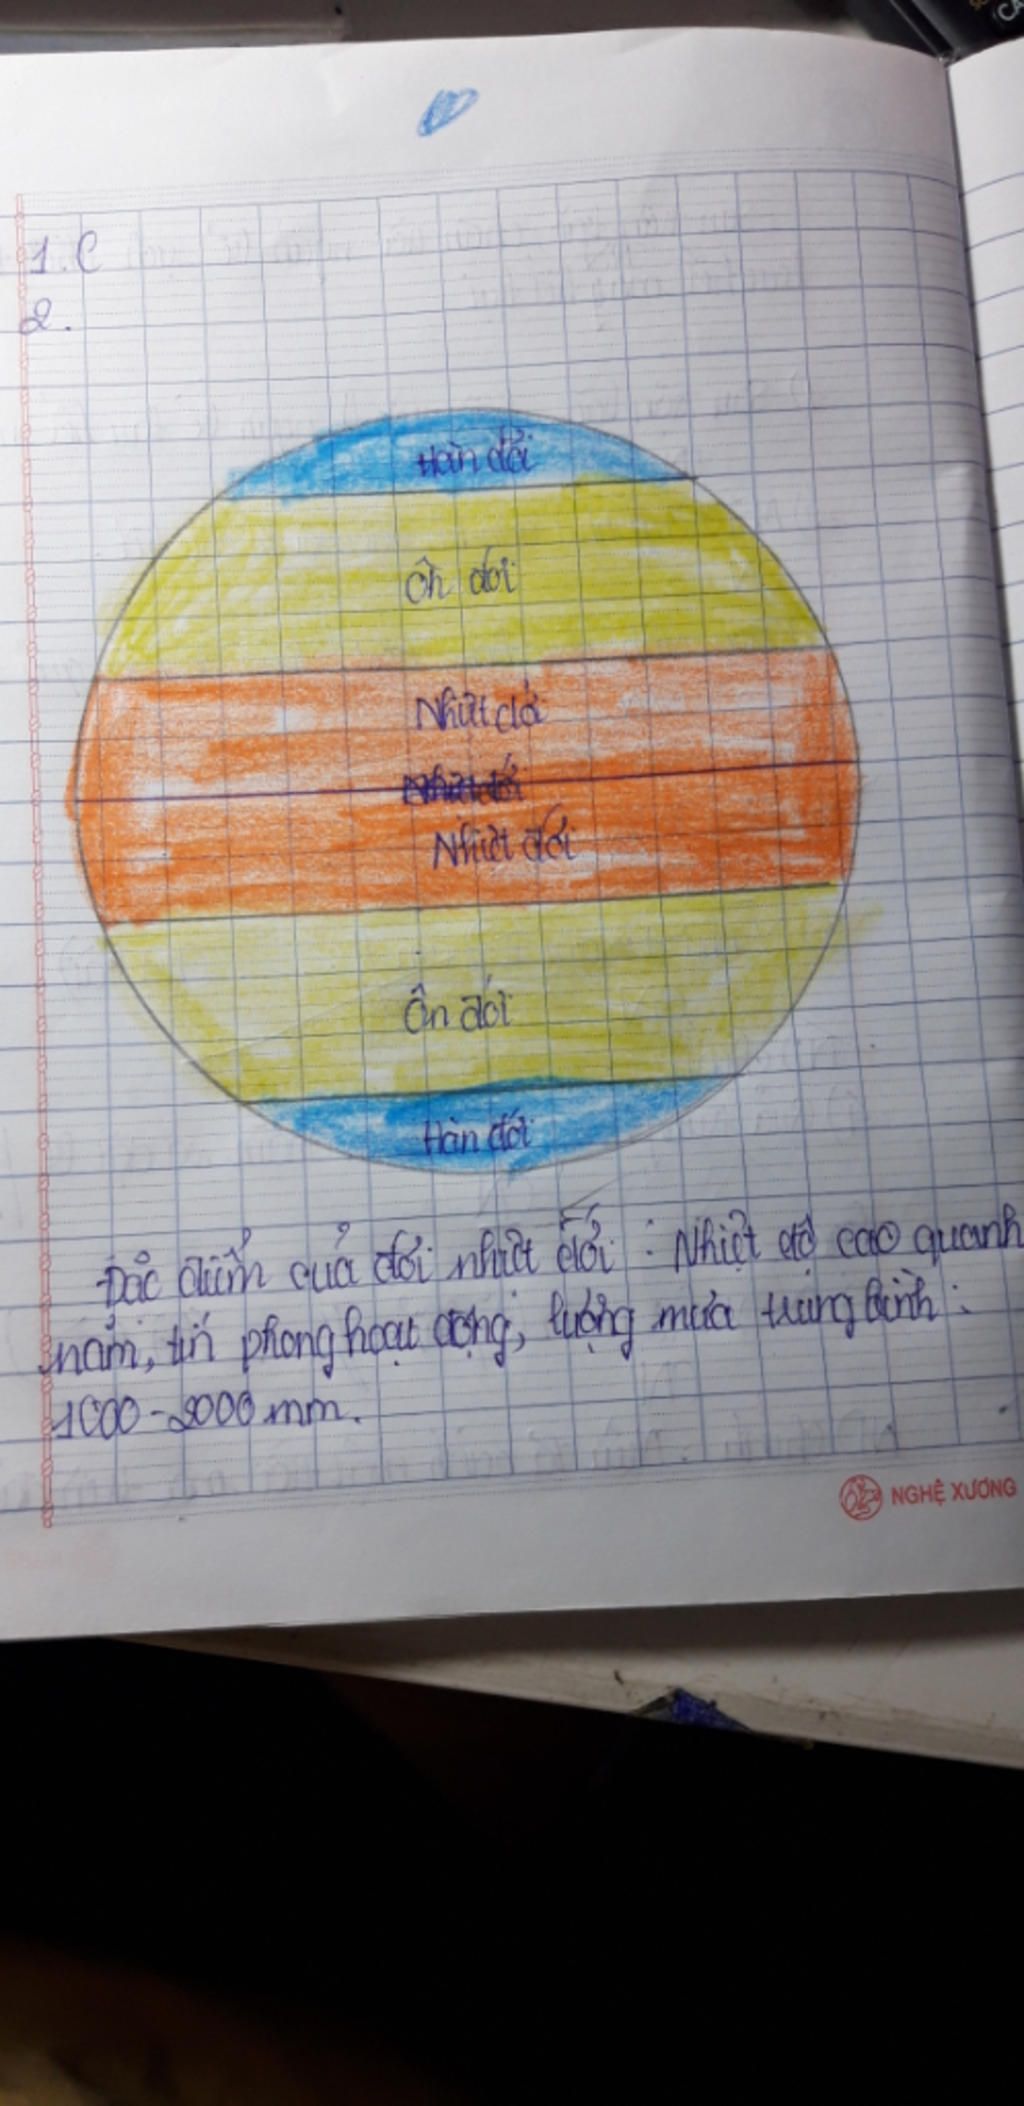 1. C
2.
Hàn đới
Ôn đới
Nhiệt đới
Nhiệt đới
Nhiệt đới
Ôn đới
Hàn đới
Đặc điểm của đới nhiệt đới : Nhiệt độ cao quanh
năm, tín phong hoạt động, lượng mưa trung bình :
1000 - 2000 mm.
NGHỆ XƯƠNG